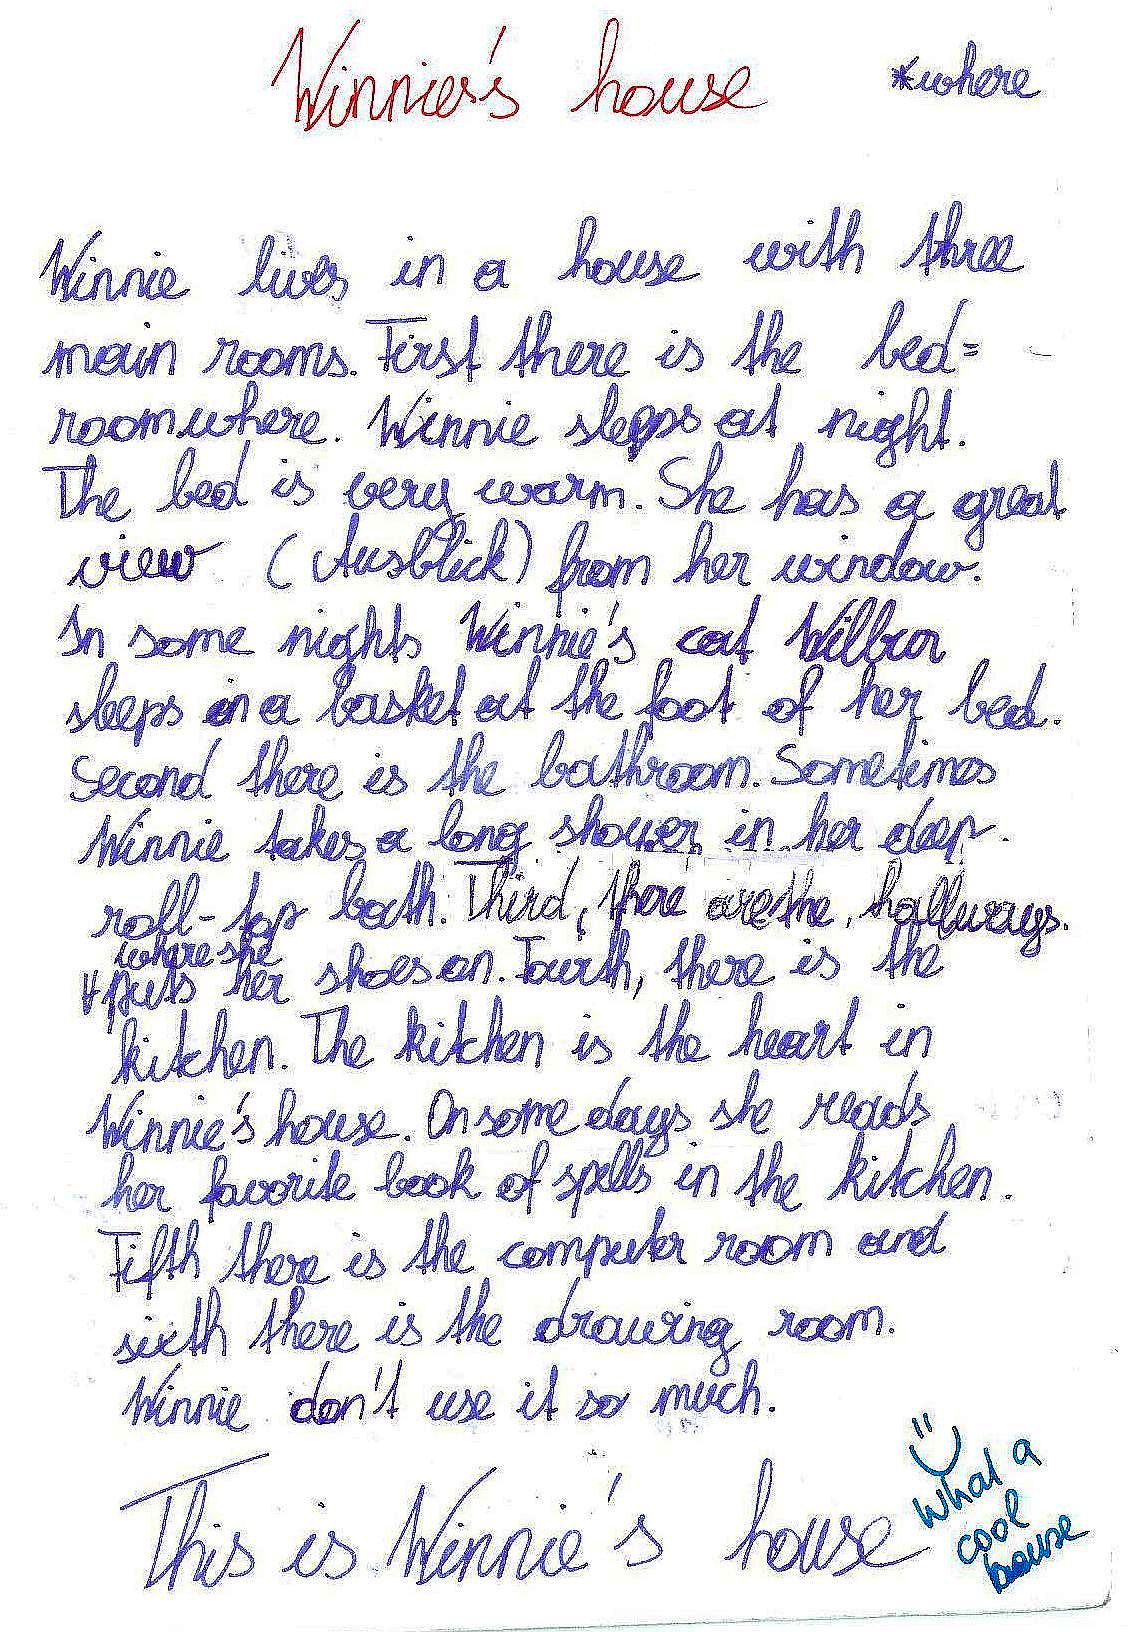 Winnies's house
*where
Winnie lives in a house with three
main rooms. First there is the bed=
room where. Winnie sleeps at night.
The bed is very warm. She has a great
view (Ausblick) from her window.
In some nights Winnie's cat Wilbur
sleeps in a basket at the foot of her bed.
Second there is the bathroom. Sometimes
Winnie takes a long shower in her deep
roll-top bath. Third, there are the, hallways.
where she
*puts her shoes on. Fourth, there is the
kitchen. The kitchen is the heart in
Winnie's house. On some days she reads
her favorite book of spells in the kitchen.
Fifth there is the computer room and
sixth there is the drawing room.
Winnie don't use it so much.
This is Winnie's house
What a
cool
house